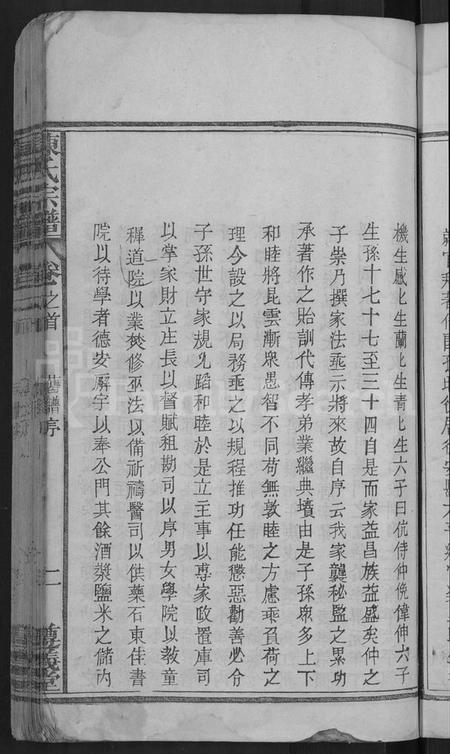 機生感匕生蘭匕生青匕生六子曰伉侍仲俛偉伸六子
生孫十七十七至三十四自是而家益昌族益盛矣仲之
子崇乃撰家法垂示將來故自序云我家龔秘監之累功
承著作之貽訓代傳孝弟業繼典墳由是子孫眾多上下
和睦將昆雲漸衆愚智不同苟無敦睦之方慮乖負荷之
理今設之以局務垂之以規程推功任能懲惡勸善必令
子孫世守家規允蹈和睦於是立主事以專家政置庫司
以掌家財立庄長以督賦租勘司以序男女學院以教童
穉道院以業焚修巫法以備祈禱醫司以供藥石東佳書
院以待學者德安廨宇以奉公門其餘酒漿鹽米之儲內
陳氏宗譜
卷之首
舊譜序
二